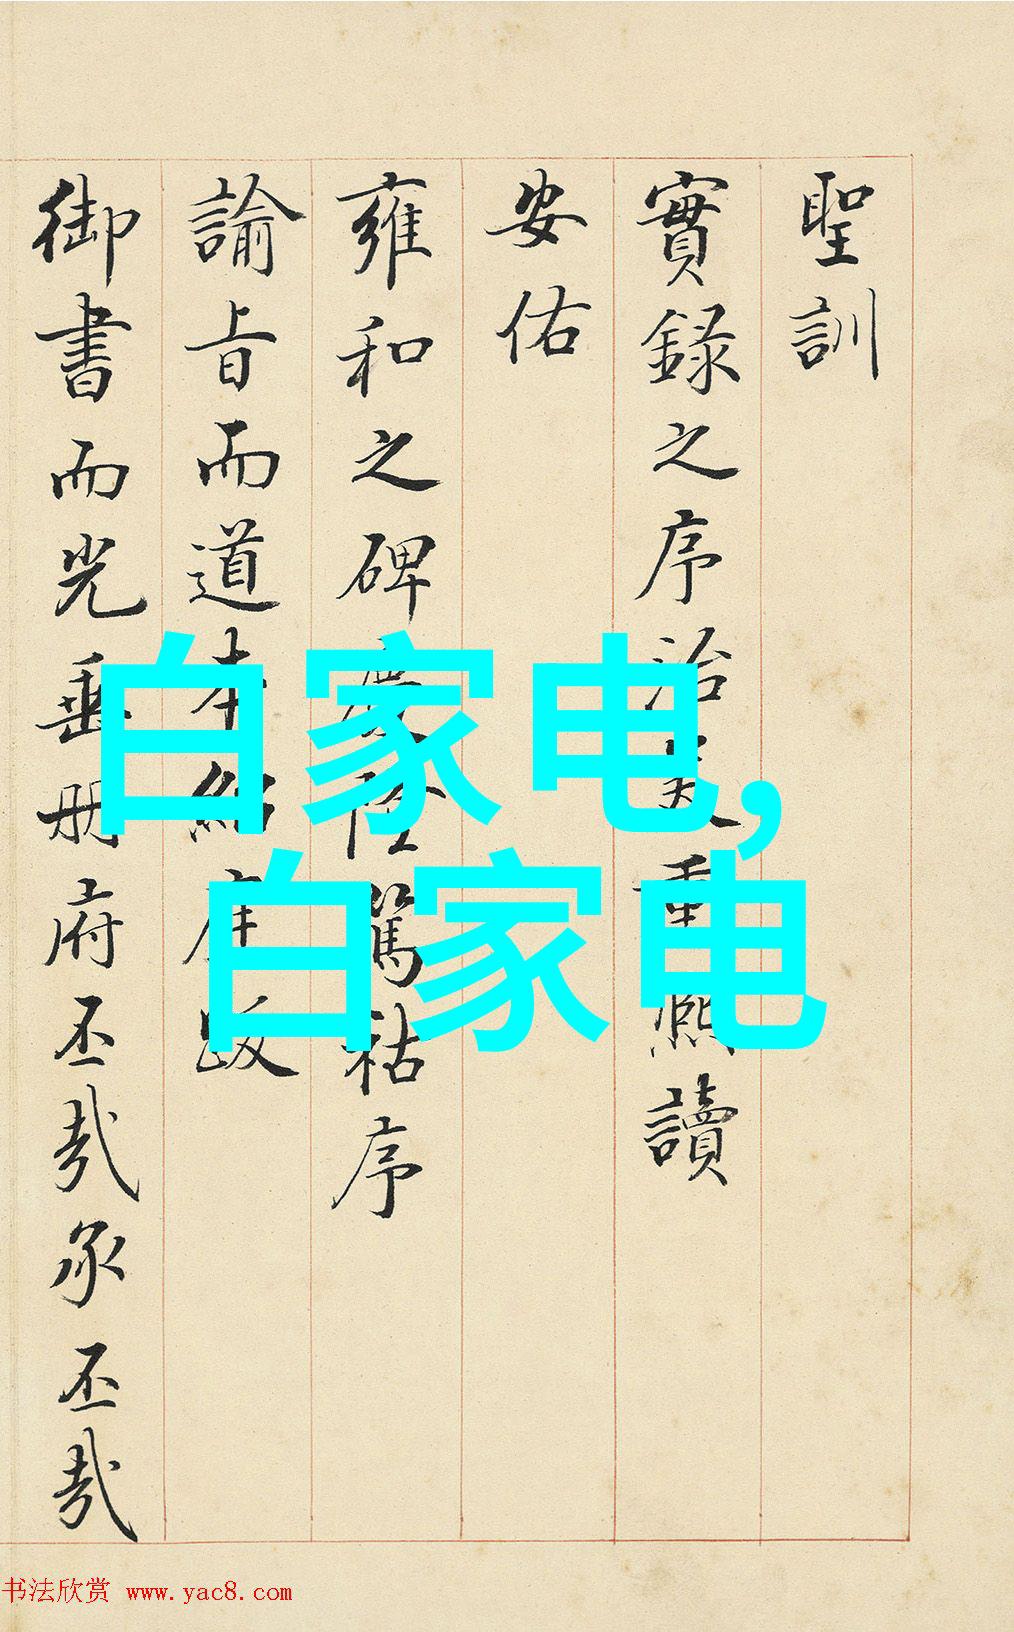 聖訓
實錄之序治重熙讀
安佑
雍和之碑慶陛篤祜序
諭旨而道本紹庭跋
御書而光垂册府丕哉承丕哉
白家电,
白家电
书法欣赏 www.yac8.com